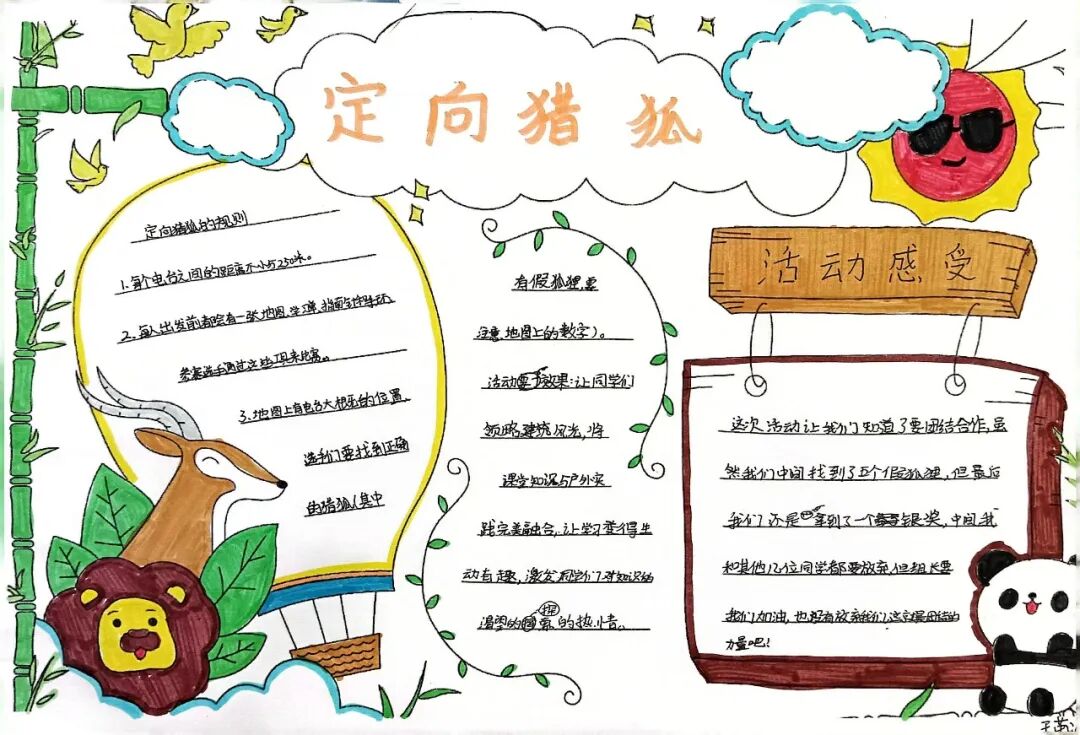 定向猎狐
定向猎狐的规则
1.每个电台之间的距离不小于250米。
2.每人出发前都会有一张地图、学习单、指南针
选手通过这些
3.地图上有电台大概的位置,
选手们要找到正确
由猎狐(其中
有假狐狸,要
注意地图上的数字)。
活动效果:让同学们
领略建筑风光,将
课堂知识与户外实
践完美融合,让学习变得生
动有趣,激发同学们对知识的
渴望的探索的热情。
活动感受
这次活动让我们知道了要团结合作,虽
然我们中间找到了五个假狐狸,但最后
我们还是拿到了一个银奖,中间我
和其他12位同学都要放弃,但组长要
我们加油,也没有放弃我们,这就是团结的
力量吧!